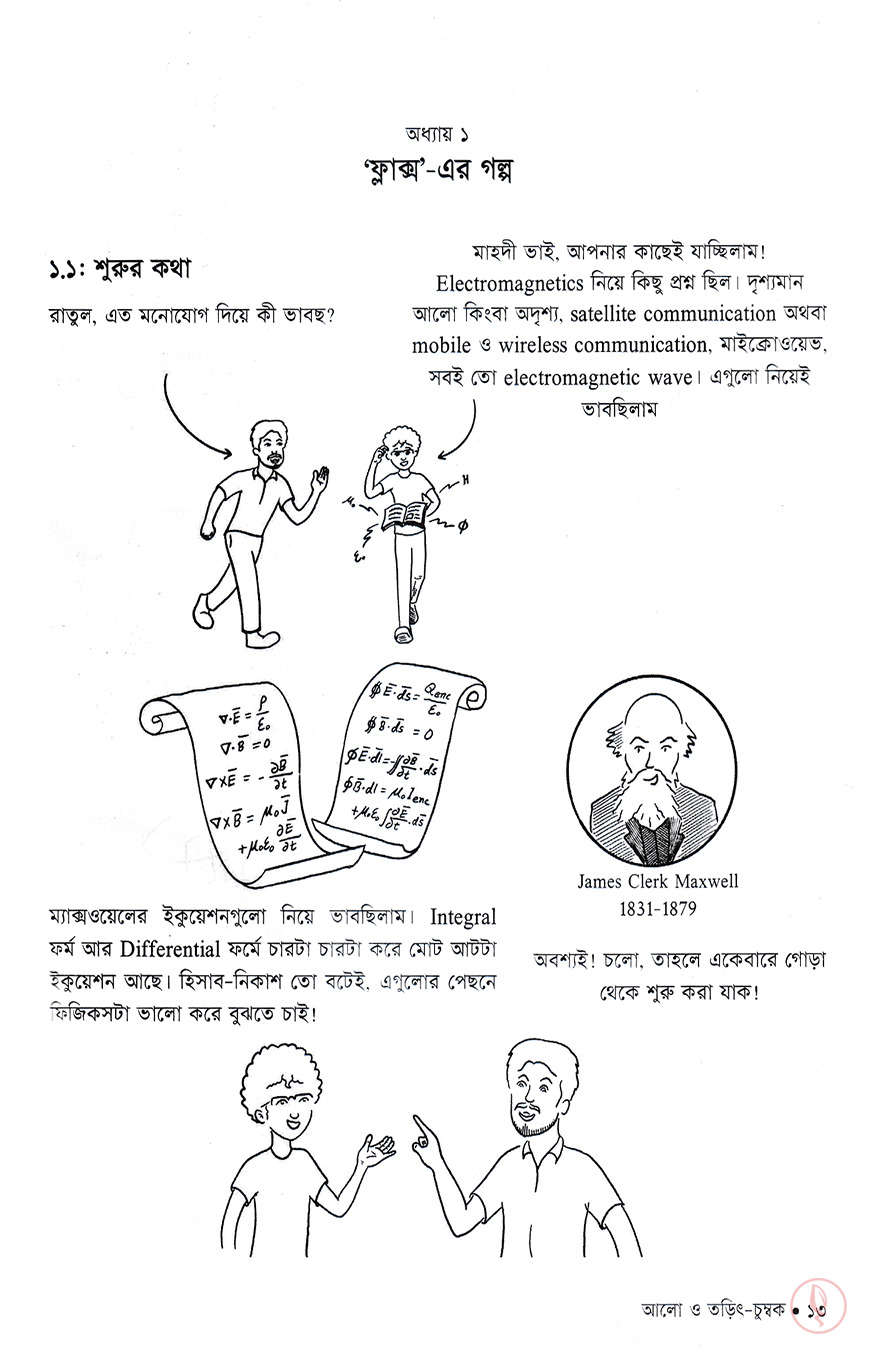 অধ্যায় ১
‘ফ্লাক্স’-এর গল্প
১.১: শুরুর কথা
রাতুল, এত মনোযোগ দিয়ে কী ভাবছ?
মাহদী ভাই, আপনার কাছেই যাচ্ছিলাম!
Electromagnetics নিয়ে কিছু প্রশ্ন ছিল। দৃশ্যমান
আলো কিংবা অদৃশ্য, satellite communication অথবা
mobile ও wireless communication, মাইক্রোওয়েভ,
সবই তো electromagnetic wave। এগুলো নিয়েই
ভাবছিলাম
H
μ₀
ϕ
ε₀
∇·E̅ = ρ/ε₀
∇·B̅ = 0
∇×E̅ = - ∂B̅/∂t
∇×B̅ = μ₀J̅
+μ₀ε₀ ∂E̅/∂t
∯E̅·d̅s̅ = Qenc/ε₀
∯B̅·d̅s̅ = 0
∮E̅·d̅l̅ = -∬∂B̅/∂t·d̅s̅
∮B̅·dl = μ₀Ienc
+μ₀ε₀∫∂E̅/∂t·d̅s̅
James Clerk Maxwell
1831-1879
ম্যাক্সওয়েলের ইকুয়েশনগুলো নিয়ে ভাবছিলাম। Integral
ফর্ম আর Differential ফর্মে চারটা চারটা করে মোট আটটা
ইকুয়েশন আছে। হিসাব-নিকাশ তো বটেই, এগুলোর পেছনে
ফিজিকসটা ভালো করে বুঝতে চাই!
অবশ্যই! চলো, তাহলে একেবারে গোড়া
থেকে শুরু করা যাক!
আলো ও তড়িৎ-চুম্বক • ১৩